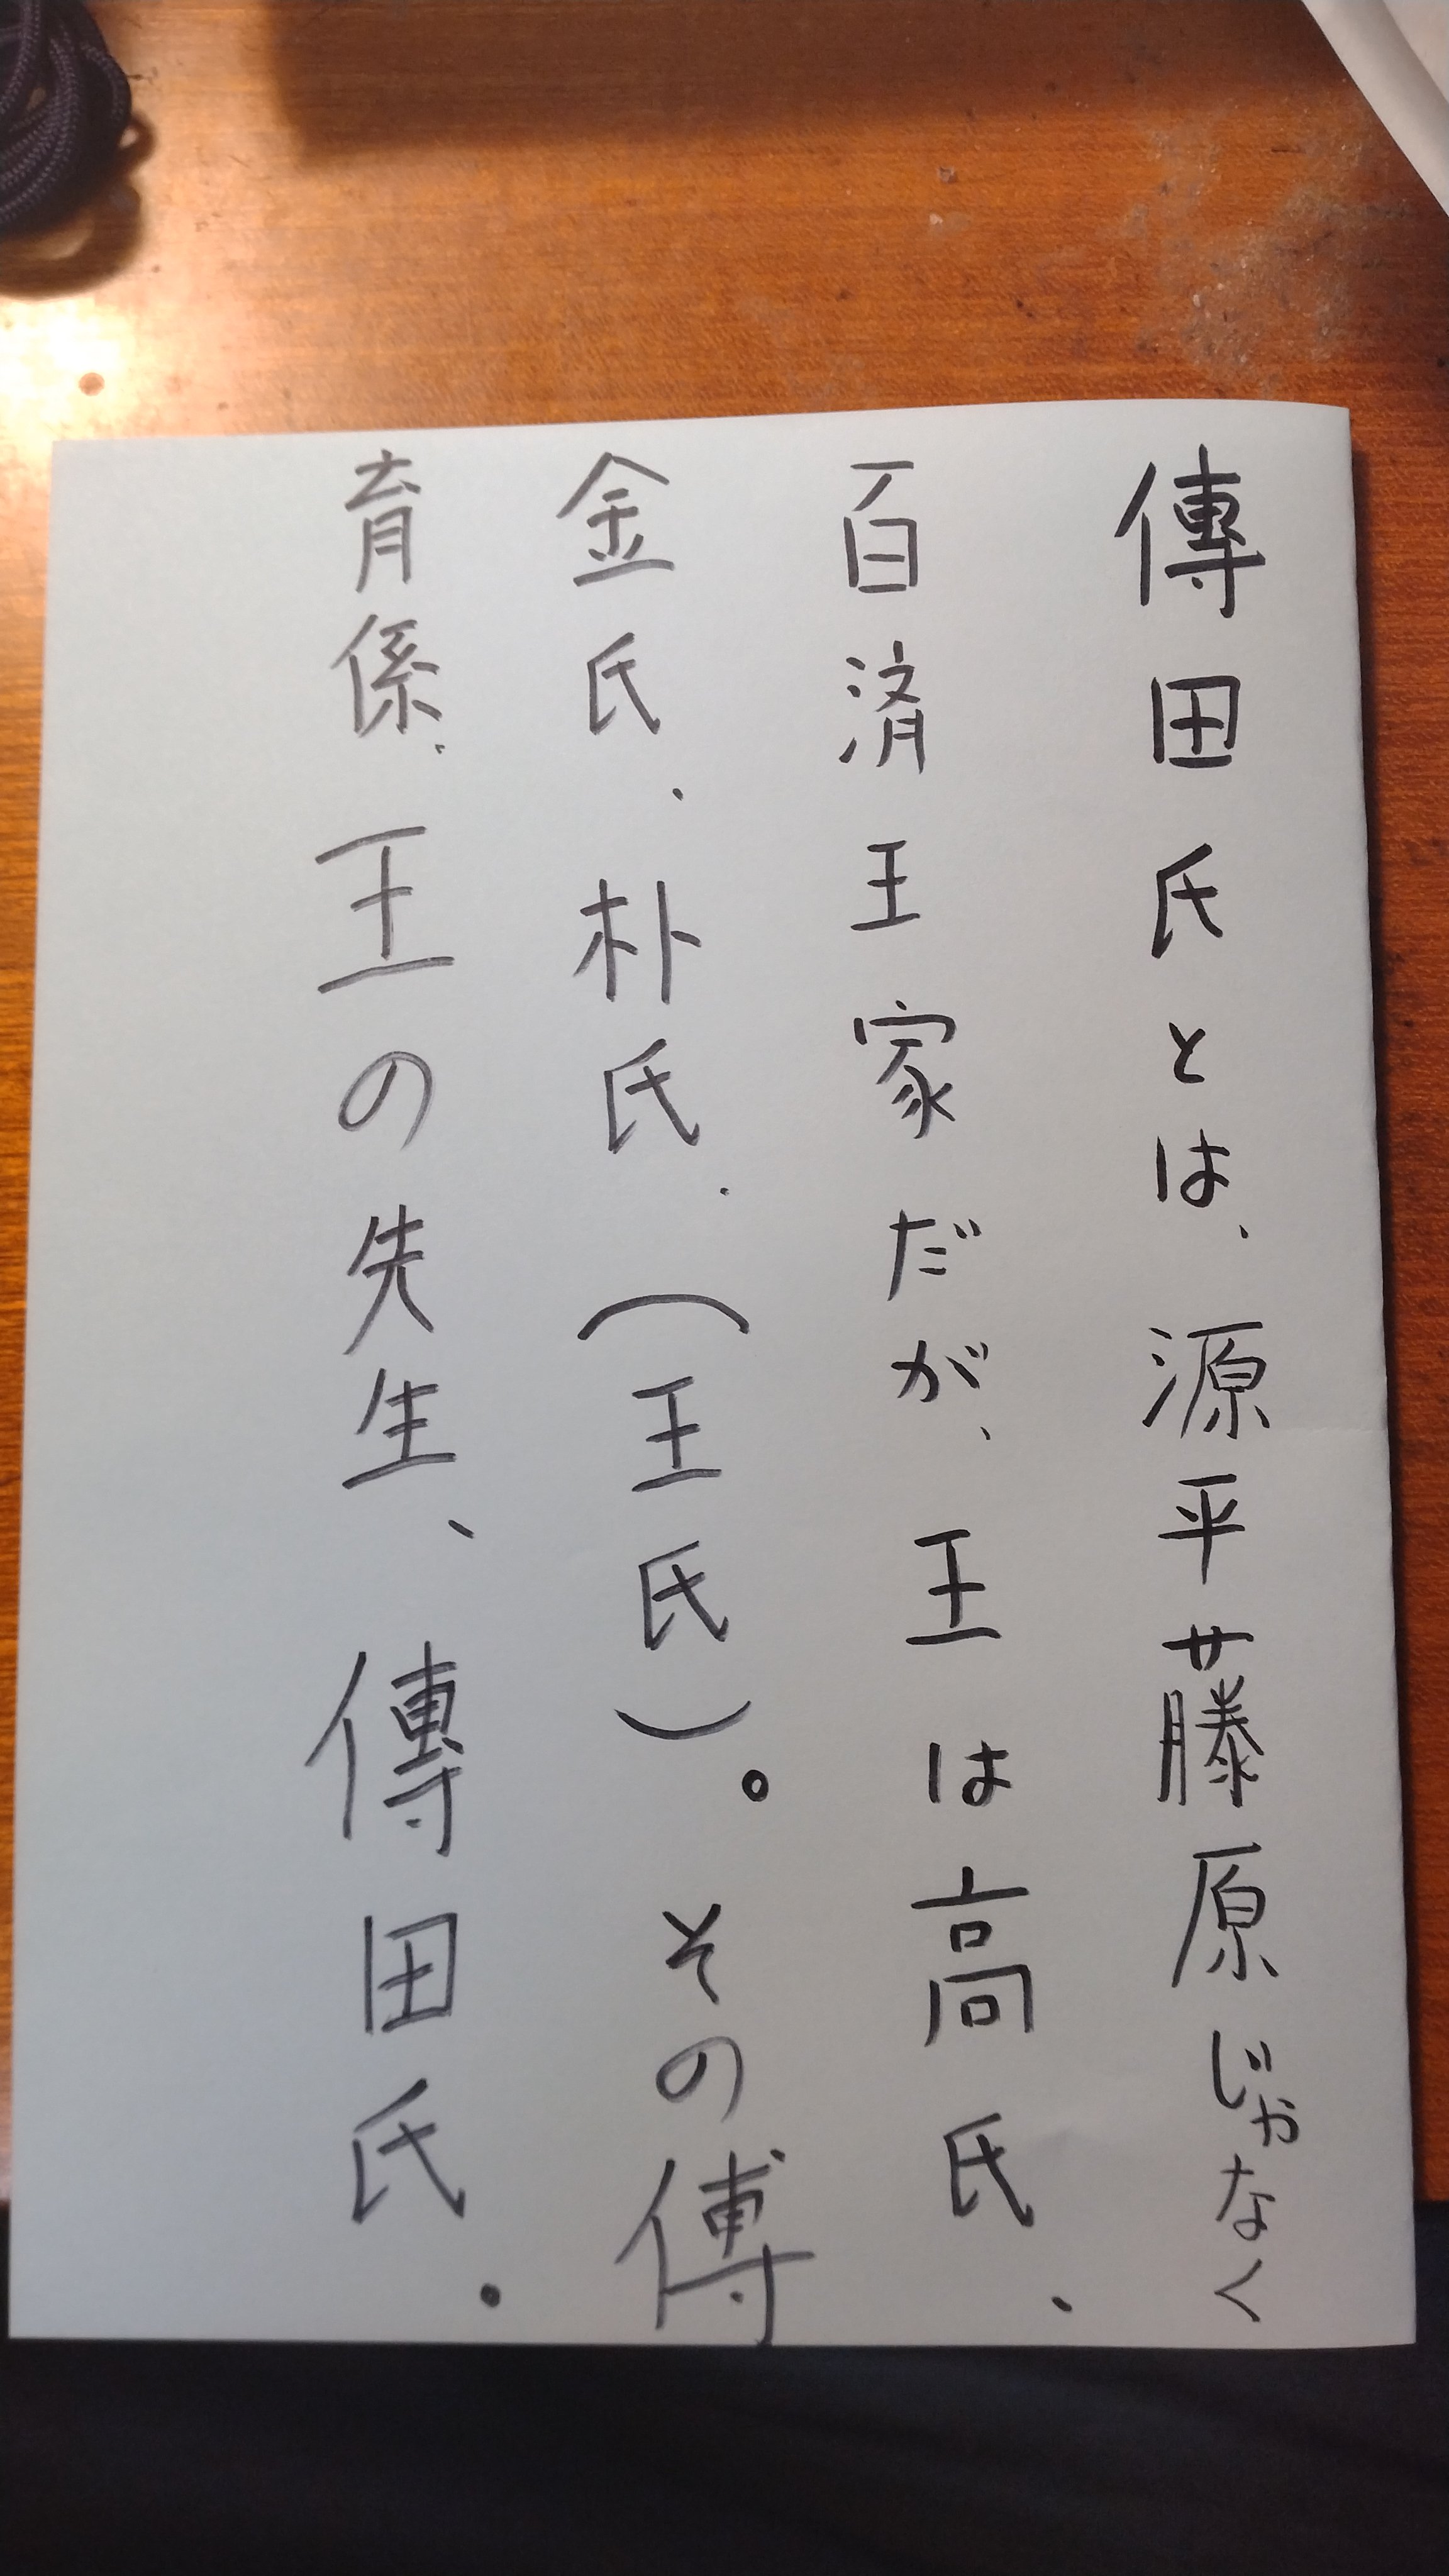 傳田氏とは、源平藤原じゃなく
百済王家だが、王は高氏、
金氏、朴氏、(王氏)。その傅
育係、王の先生、傳田氏。